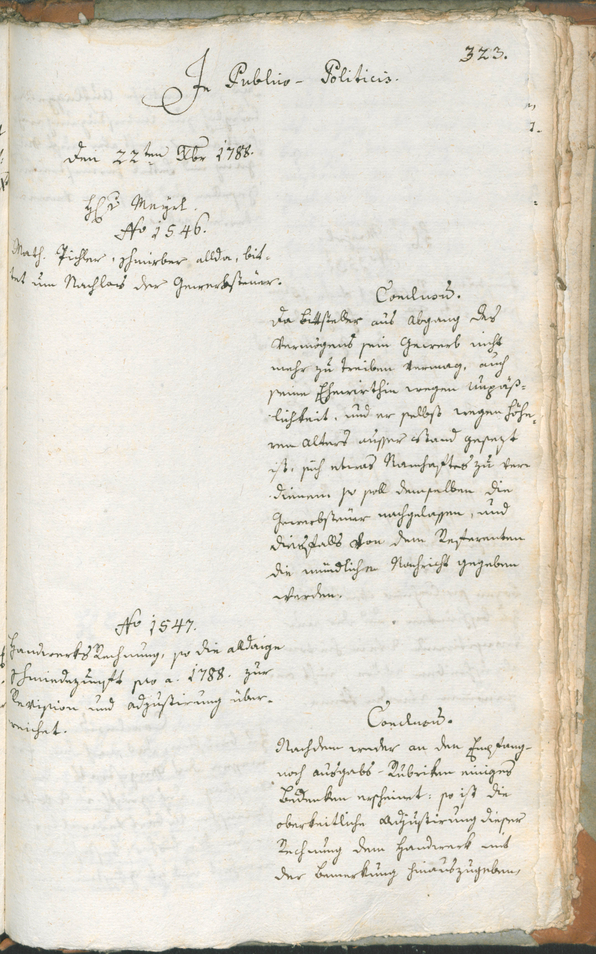 323.
In Publico-Politicis.
den 22ten Xbr 1788.
H: v Meyrl.
No 1546.
Math. Pichler, schmirber allda, bit-
tet um Nachlas der Gewerbsteuer.
Conclusum.
Da Bittsteller aus Abgang des
Vermögens sein Gewerb nicht
mehr zu treiben vermag, auch
seine Ehewirthin wegen Unpäß-
lichkeit, und er selbst wegen höhe-
ren Alters ausser stand gesezt
ist, sich etwas Namhaftes zu ver-
dienen; so soll demselben die
Gewerbsteuer nachgelassen, und
diesfalls von dem Referenten
die mündliche Nachricht gegeben
werden.
No 1547.
Handwerks Rechnung, so die alldaige
Schmiedezunft pro a. 1788. zur
Revision und adjustirung über-
reichet.
Conclusum.
Nachdem weder an den Empfang-
noch ausgabs-Rubriken einiges
Bedenken erscheinet: so ist die
oberkeitliche Adjustirung dieser
Rechnung dem Handwerk mit
der Bemerkung hinauszugeben,